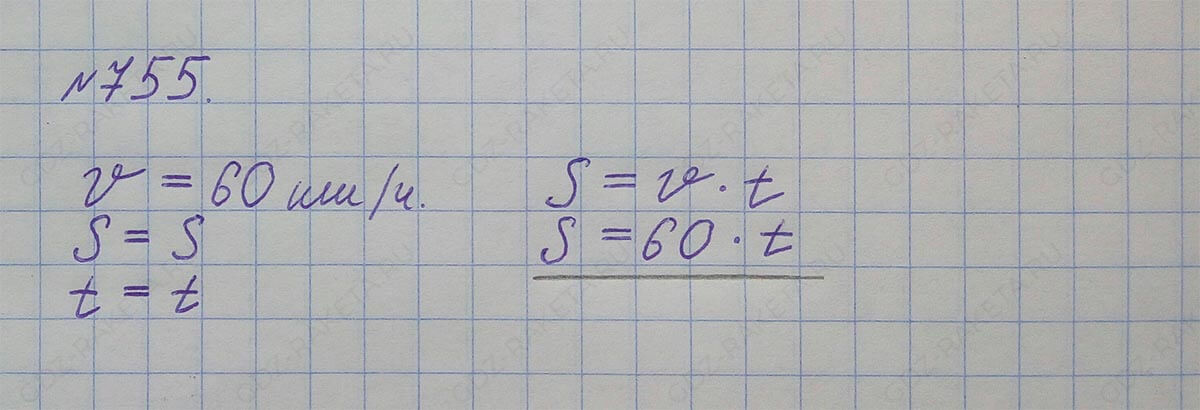 №755.
v = 60 км/ч.
S = S
t = t
S = v · t
S = 60 · t
GDZ-RAKETA.RU